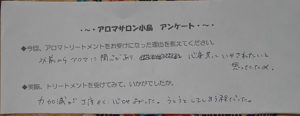 ・～・アロマサロン小島 アンケート・～・
◆今回、アロマトリートメントをお受けになった理由を教えてください。
以前からアロマに関心があり、心身共にいやされたいと
思ったため。
◆実際、トリートメントを受けてみて、いかがでしたか。
力加減が丁度よく、心地よかった。うとうとしてしまう程でした。